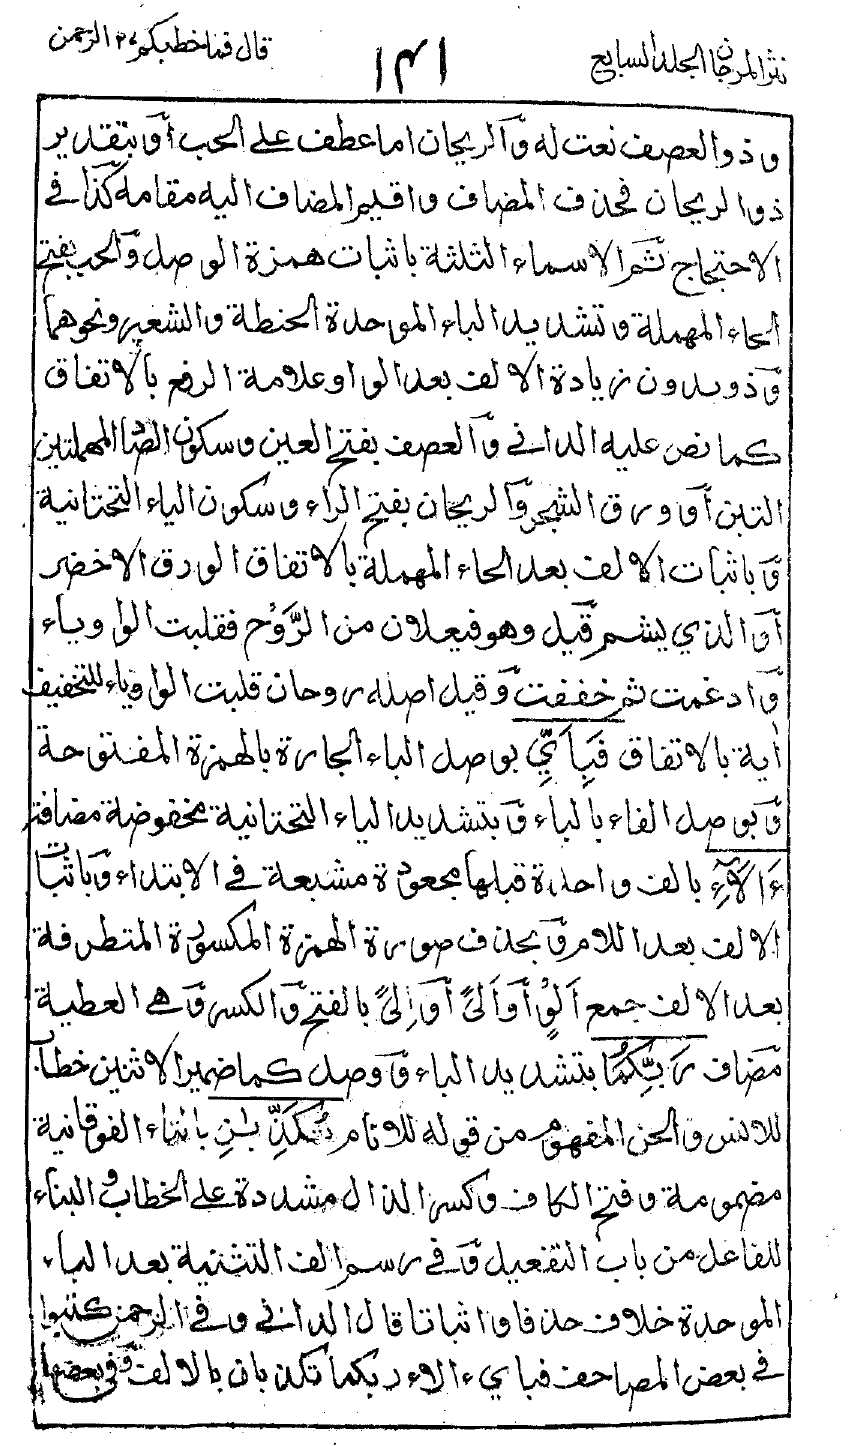 نثر المرجان الجلد السابع
١٤١
قال فما خطبكم ٢٧ الرحمن
وذو العصف نعت له وَالريحان اما عطف على الحب أوَ بتقدير
ذو الريحان فحذف المضاف واقيم المضاف اليه مقامه كذا في
الاحتجاج ثم الاسماء الثلثة باثبات همزة الوصل وَالحب بفتح
الحاء المهملة وتشديد الباء الموحدة الحنطة والشعير ونحوهما
وَذو بدون زيادة الالف بعد الواو علامة الرفع بالاتفاق
كما نص عليه الداني وَالعصف بفتح العين وسكون الصاد المهملتين
التبن أوَ ورق الشجر وَالريحان بفتح الراء وسكون الياء التحتانية
وَباثبات الالف بعد الحاء المهملة بالاتفاق الورق الاخضر
أوَ الذي يشم قيل وهو فيعلان من الرَّوْح فقلبت الواو ياء
وَادغمت ثم خففت وَقيل اصله روحان قلبت الواو ياء للتخفيف
أية بالاتفاق فَبِاَيِّ بوصل الباء الجارة بالهمزة المفتوحة
وَبوصل الفاء بالباء وَبتشديد الياء التحتانية مخفوضة مضافة
ءَالَآءِ بالف واحدة قبلها مجعودة مشبعة في الابتداء وَباثبات
الالف بعد اللام وَبحذف صورة الهمزة المكسورة المتطرفة
بعد الالف جمع اَلْوٍ أوَ اَلىً أوَ اِلىً بالفتح وَالكسر وَهي العطية
مَضاف رَبِّكُمَا بتشديد الباء وَوصل كما ضمير الاثنين خطاب
للانس والجن المفهوم من قوله للانام تُكَذِّبٰنِ بالتاء الفوقانية
مضمومة وفتح الكاف وكسر الذال مشددة على الخطاب والبناء
للفاعل من باب التفعيل وَفي رسم الف التثنية بعد الباء
الموحدة خلاف حذفا واثباتا قال الداني وفي الرحمن كتبوا
في بعض المصاحف فباي ءالاء ربكما تكذبان بالالف وَفي بعضها